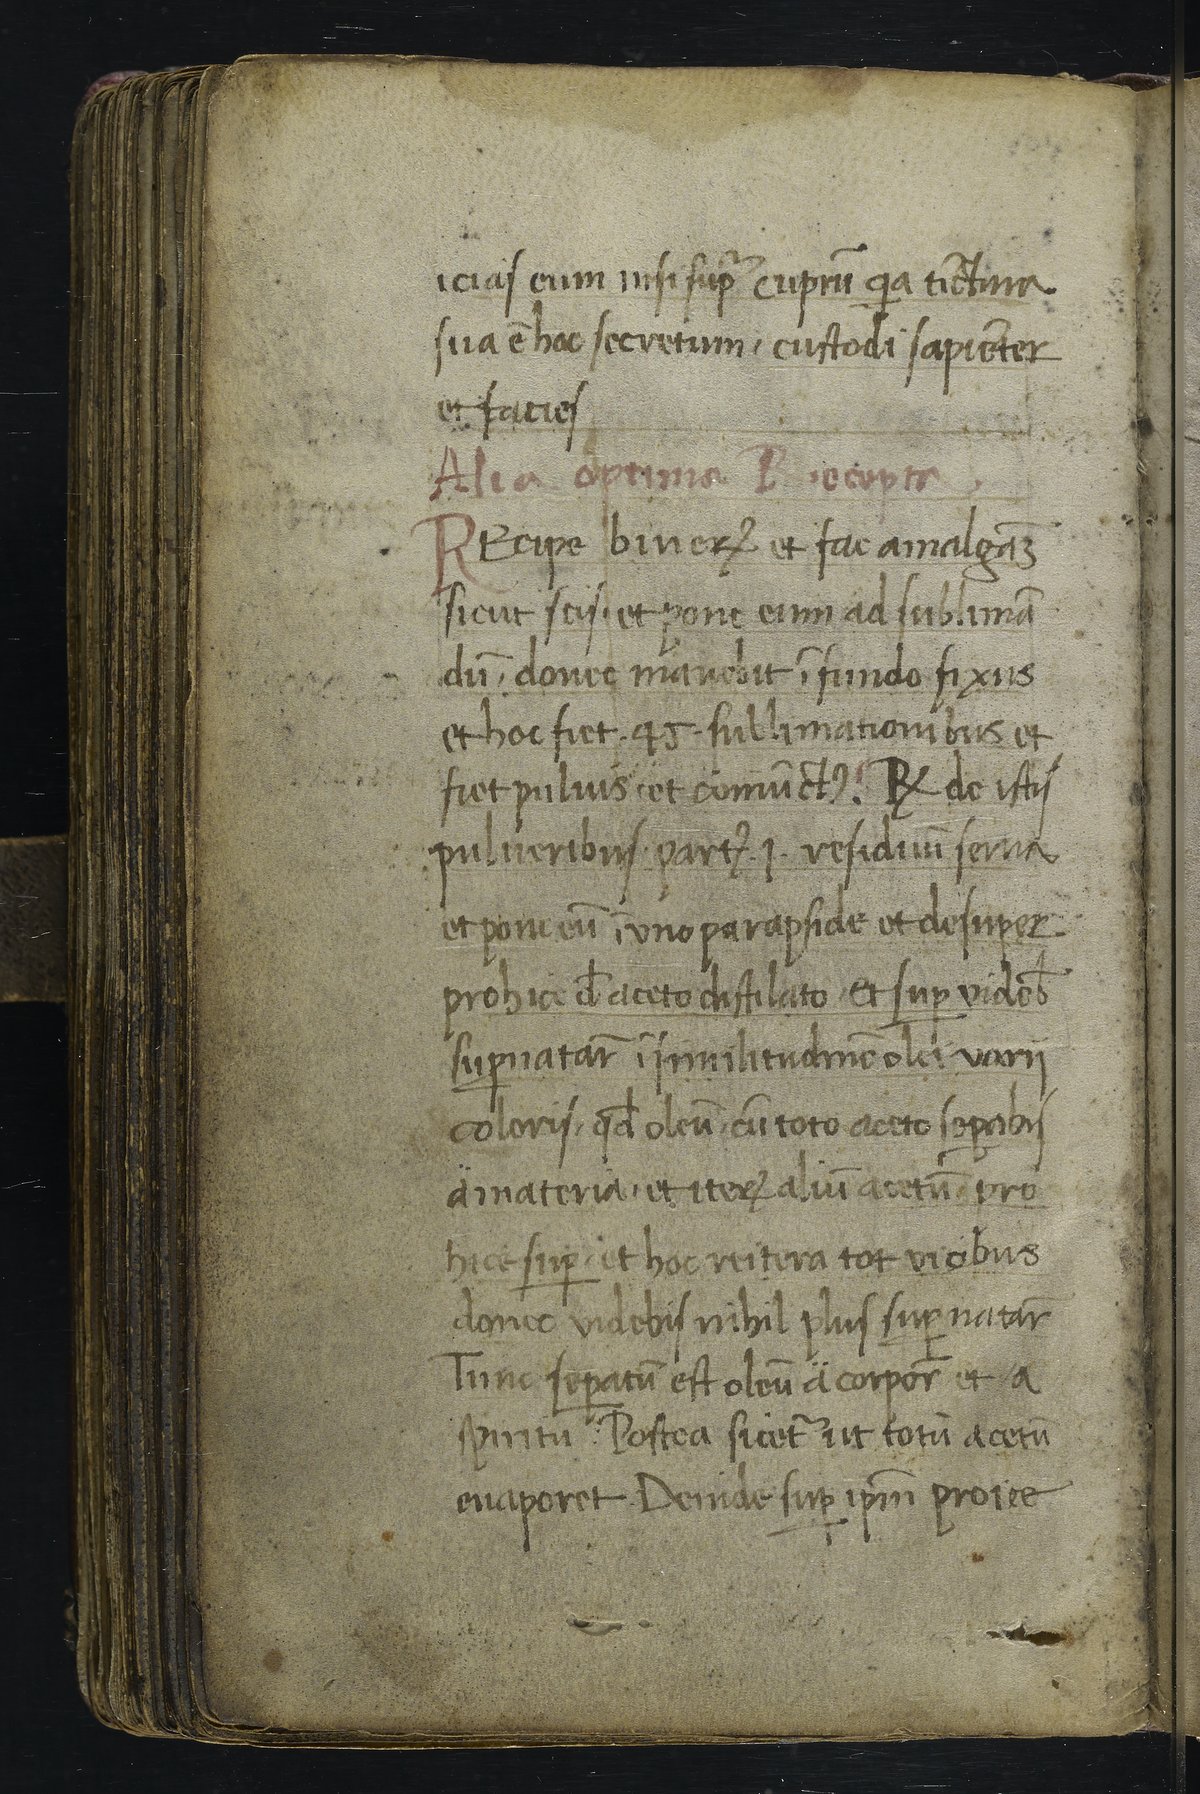 icias eum nisi sup̃ cuprũ q̃a tinctura
sua ẽ hoc secretum · custodi sapiẽter
et facies
Alia optima Recepta ·
REcipe biuerꝝ et fac amalgaꝫ
sicut scis · et pone eum ad sublimã
dũ · donec manebit ĩ fundo fixus
et hoc fiet · 45 · sublimationibus et
fiet puluis · et coniũctꝰ · ℞ de istis
pulueribus · partẽ · 1 · residuũ serua
et pone eũ ĩ uno parapside et desuper
prohice đ aceto distilato · Et suꝑ videb̃
suꝑnatar̃ ĩ similitudinẽ olei varij
coloris · qđ oleũ · cũ toto aceto seꝑabis
a materia · et iterꝝ aliũ acetũ pro
hice suꝑ · et hoc reitera tot vicibus
donec videbis nihil plus suꝑnatar̃
Tunc seꝑatũ est oleũ a corpor̃ et a
spiritu · Postea sicet̃ ut totũ acetũ
euaporet · Deinde suꝑ ip̃m proice